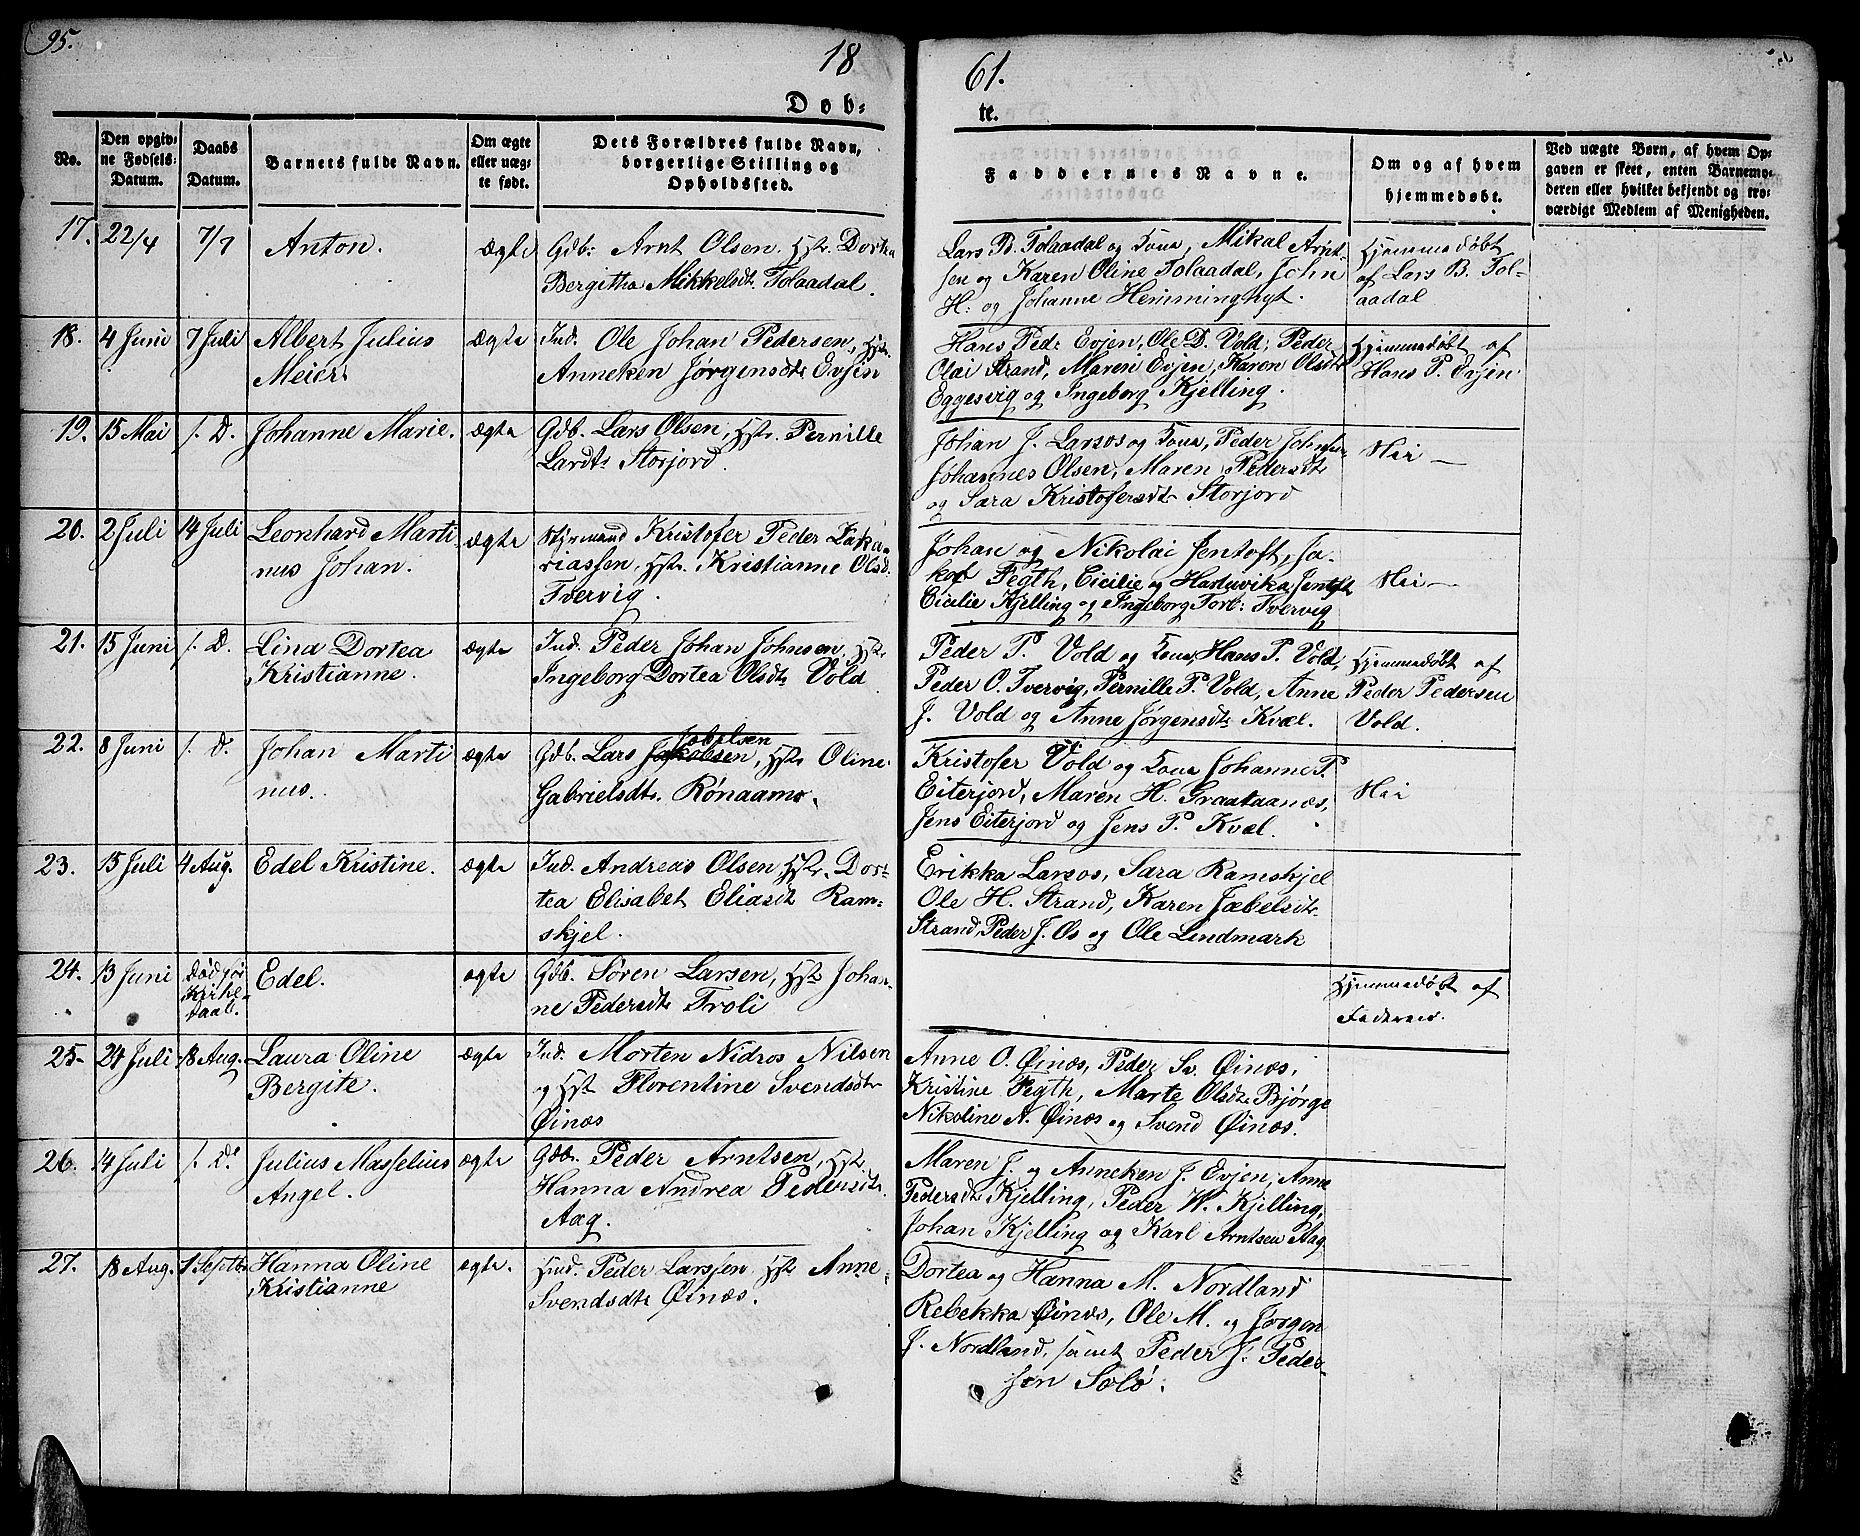 95.
18
61.
Dob-
te.
No.
Den opgiv-
ne Fødsels-
Datum.
Daabs
Datum.
Barnets fulde Navn.
Om ægte
eller uæg-
te født.
Dets Forældres fulde Navn,
borgerlige Stilling og
Opholdssted.
Faddernes Navne.
Om og af hvem
hjemmedøbt.
Ved uægte Børn, af hvem Op-
gaven er skeet, enten Barnemo-
deren eller hvilket bekjendt og tro-
værdigt Medlem af Menigheden.
17. 22/4 7/7 Anton. ægte Gdb: Arnt Olsen, Hstr. Dortea
Bergitha Mikkelsdt. Tolaadal.
Lars B. Tolaadal og Kone, Mikal Arnt-
sen og Karen Oline Tolaadal, John
H. og Johanne Hemminghyt.
Hjemmedøbt
af Lars B. Tol-
aadal
18. 4 Juni 7 Juli Albert Julius
Meier.
Ægte Ind. Ole Johan Pedersen, Hstr.
Anneken Jørgensdtr Evjen
Hans Ped: Evjen, Ole D. Vold, Peder
Olai Strand, Maren Evjen, Karen Olsdt
Eggesvig og Ingeborg Kjelling.
Hjemmedøbt af
Hans P. Evjen
19. 15 Mai s. D. Johanne Marie. ægte Gdb. Lars Olsen, Hstr. Pernille
Larsdtr Storjord.
Johan J. Larsos og Kone, Peder Johnsen
Johannes Olsen, Maren Pedersdt
og Sara Kristofersdt Storjord
Nei —
20. 2 Juli 14 Juli Leonhard Marti
nus Johan.
ægte Styrmand Kristofer Peder Zaka-
riassen, Hstr. Kristianne Olsd:
Tvervig.
Johan og Nikolai Jentoft, Ja-
kob Fegth, Cicilie og Hartevika Jentoft
Cicilie Kjelling og Ingeborg Torb: Tvervig
Nei —
21. 15 Juni s. D. Lina Dortea
Kristianne.
ægte Ind. Peder Johan Johnsen, Hstr.
Ingeborg Dortea Olsdtr Vold
Peder P. Vold og Kone, Hans P. Vold,
Peder O. Tvervig, Pernille P. Vold, Anne
J. Vold og Anne Jørgensdt. Kvæl.
Hjemmedøbt af
Peder Pedersen
Vold.
22. 8 Juni s. D. Johan Marti
nus.
ægte Gdb. Lars Jakobsen, Hstr. Oline
Jabelsen
Gabrielsdt. Rønaamo.
Kristofer Vold og Kone Johanne P.
Eiterjord, Maren H. Graataanes,
Jens Eiterjord og Jens P. Kvæl.
Nei
23. 15 Juli 4 Aug. Edel Kristine. ægte Ind. Andreas Olsen, Hstr. Dor-
tea Elisabet Eliasdt Ram-
skjel.
Erikka Larsos, Sara Ramskjel
Ole H. Strand, Karen Jæbelsdtr
Strand, Peder J. Os og Ole Lindmark
24. 13 Juni Død før
Kirke-
daab.
Edel. ægte Gdb. Søren Larsen, Hstr Johan-
ne Pedersdt Troli
Hjemmedøbt af
Faderen.
25- 24 Juli 18 Aug. Laura Oline
Bergite.
ægte Ind. Morten Nidros Nilsen
og Hstr Florentine Svendsdtr
Øines
Anne O. Øines, Peder Sv. Øines,
Kristine Fegth, Marte Olsdt. Bjørge
Nikoline N. Øines og Svend Øines.
26. 14 Juli s. D. Julius Masselius
Angel.
ægte Gdb. Peder Arntsen, Hstr.
Hanna Andrea Pedersdt.
Aag.
Maren J. og Anneken J. Evjen, Anne
Pedersdt. Kjelling, Peder W. Kjelling,
Johan Kjelling og Karl Arntsen Aag
27. 18 Aug. 1 Septbr Hanna Oline
Kristianne
ægte. Hind. Peder Larssen, Hstr Anne
Svendsdt. Øines.
Dortea og Hanna M. Nordland
Rebekka Øines, Ole M. og Jørgen
J. Nordland, samt Peder J. Peder-
sen Solø.